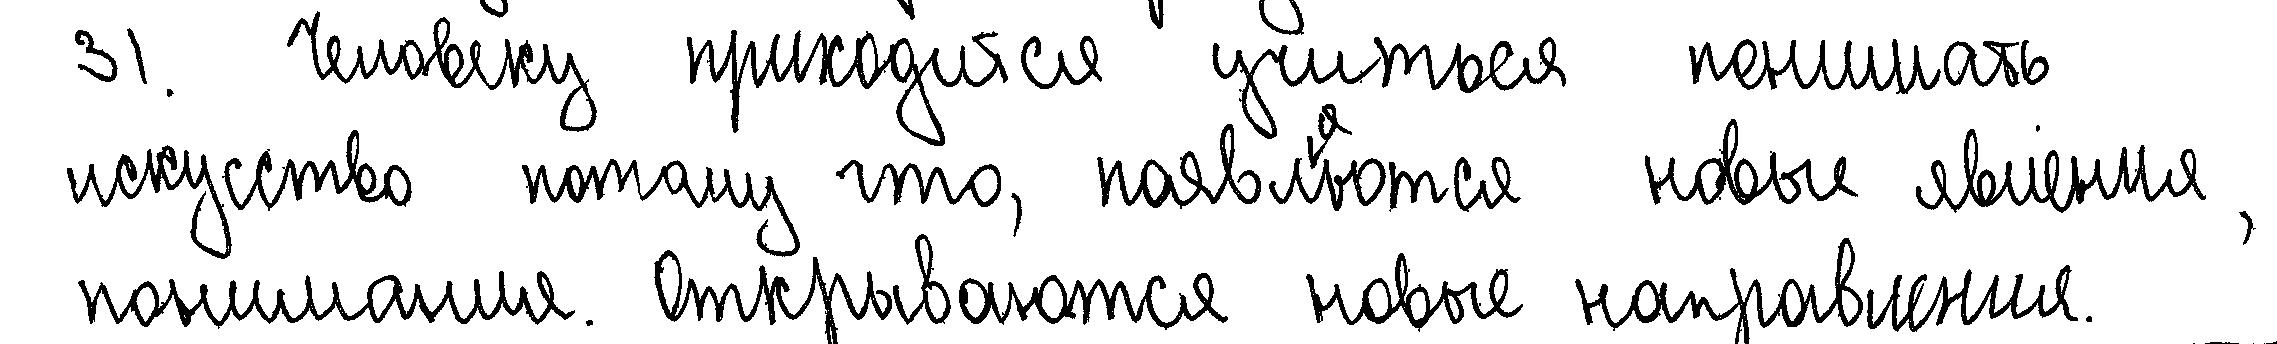 31. Человеку приходится учиться понимать
искусство потому что, появляются новые явления,
понимания. Открываются новые направления.